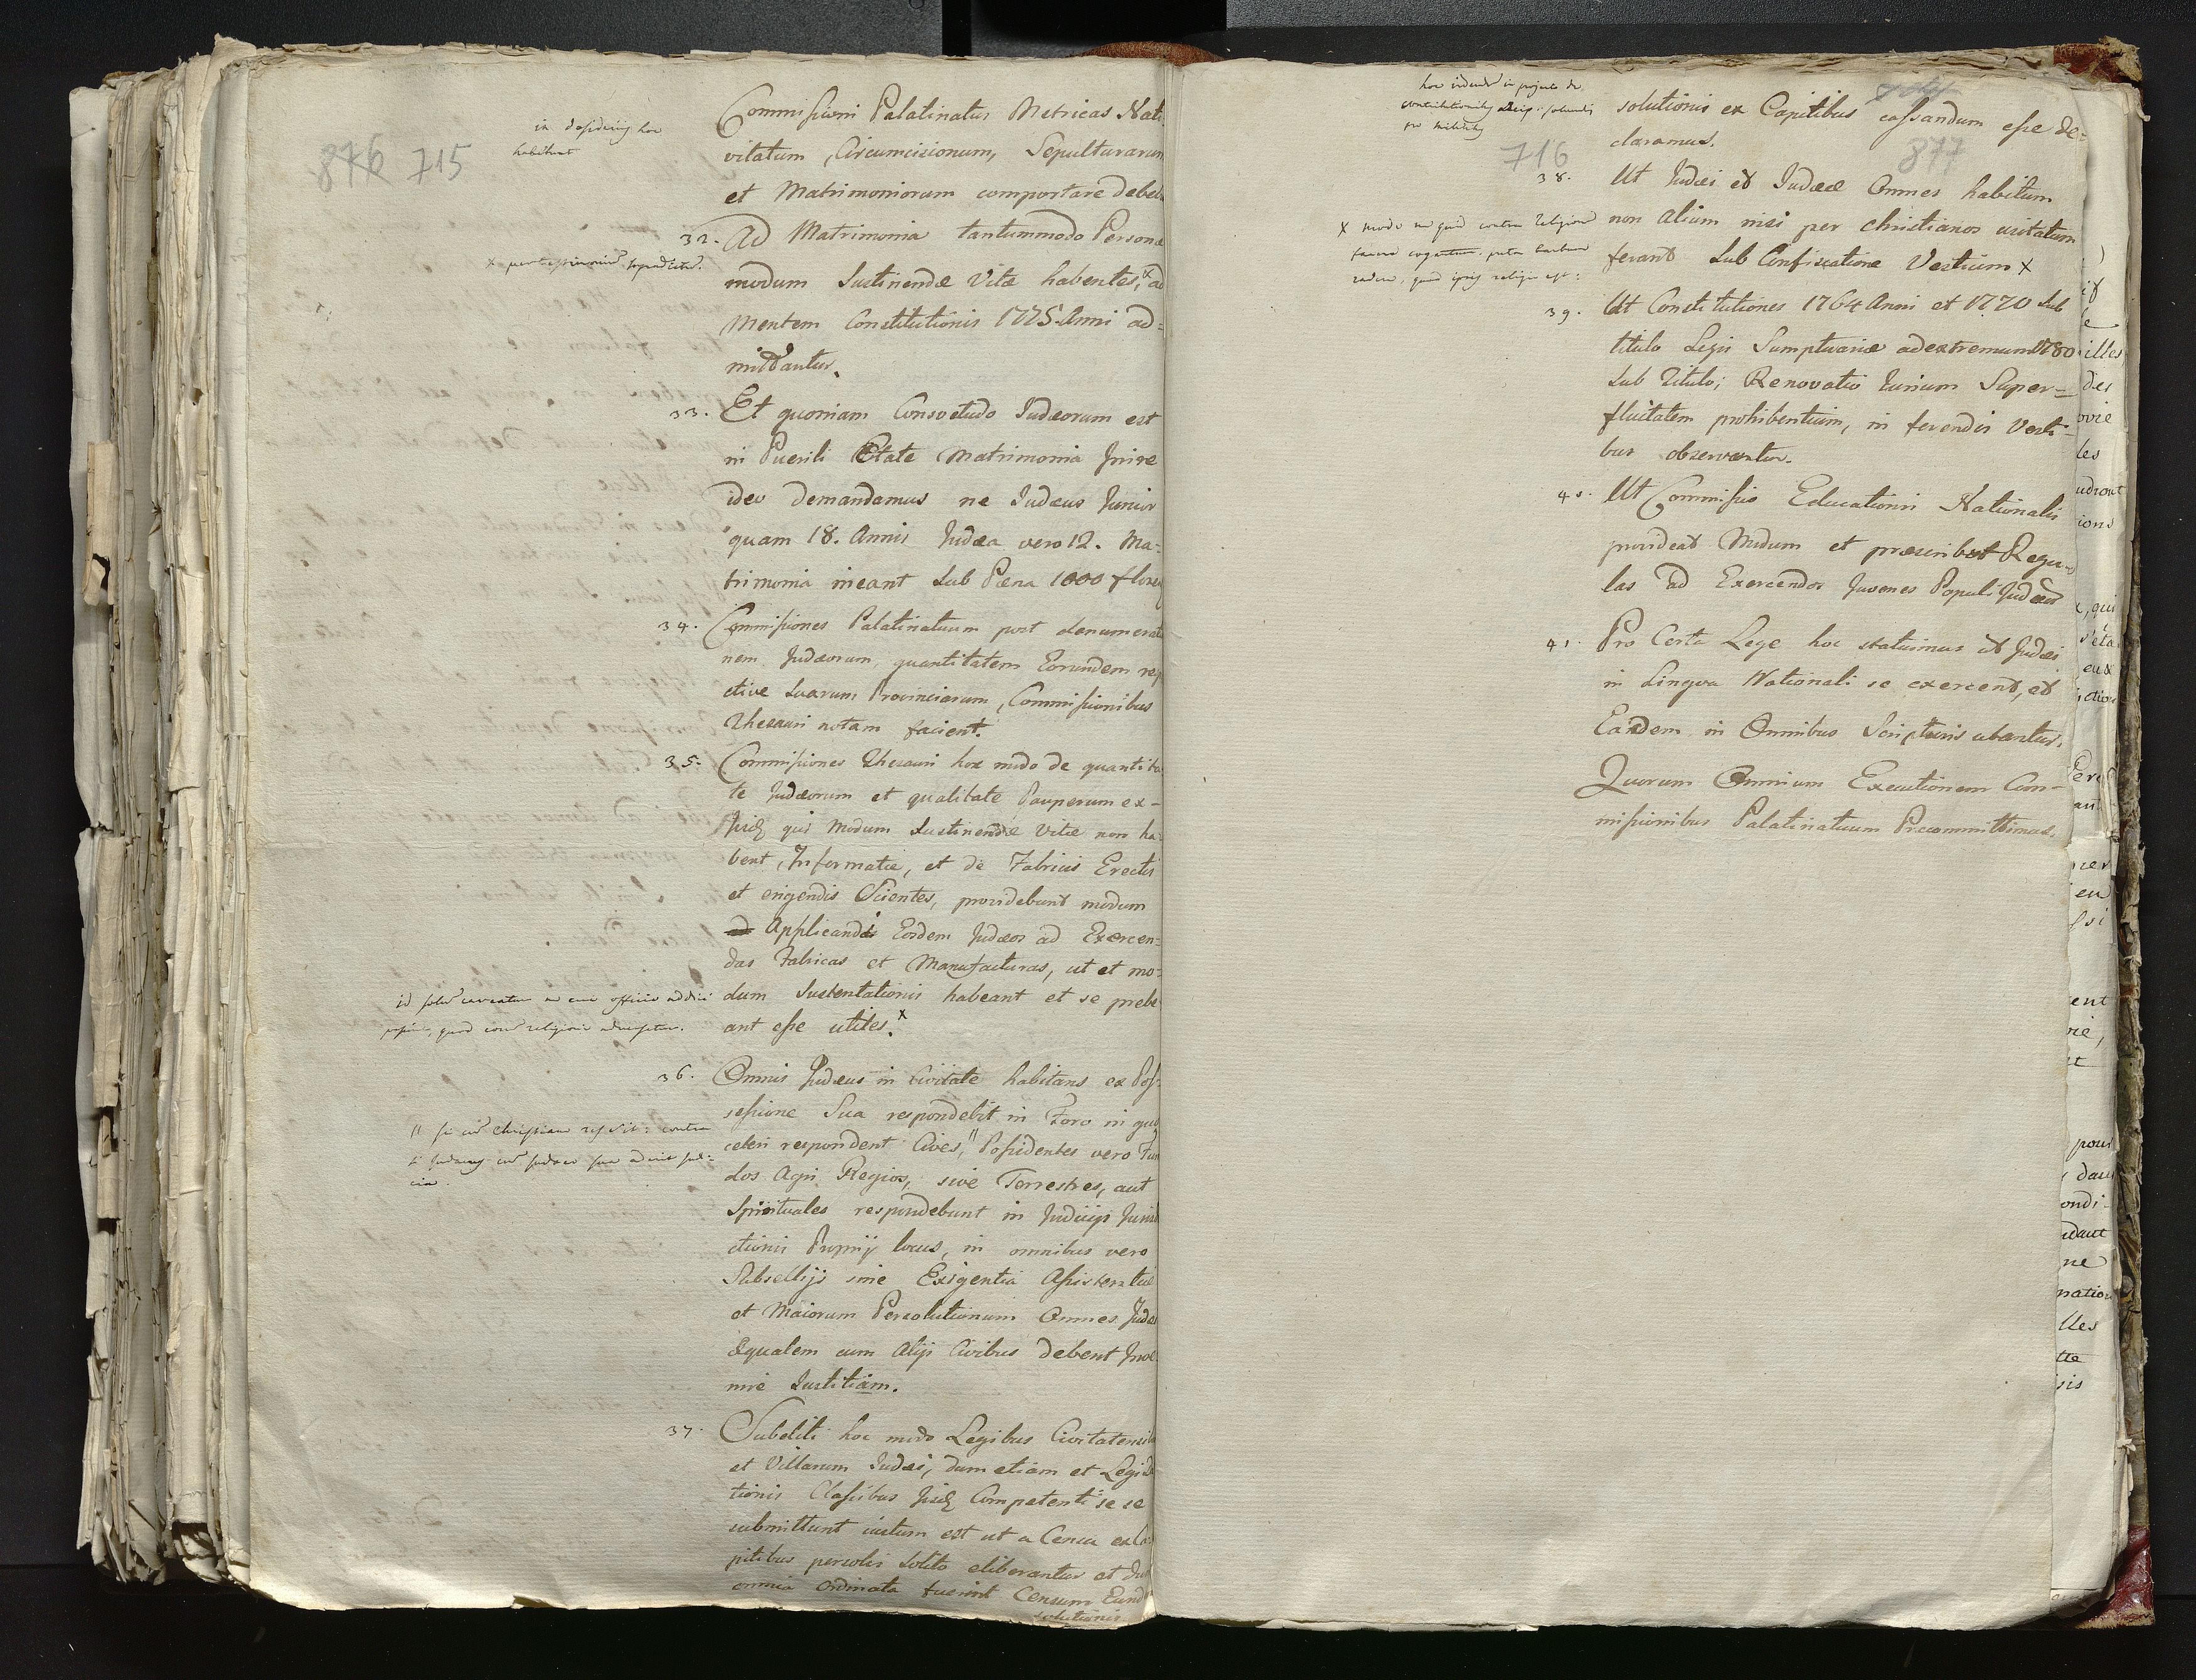 876 715
in desiderijs hoc
habetur
Commissioni Palatinatus Metricas Nati-
vitatum, Circumcisionum, Sepulturarum
et Matrimoniorum comportare debebu
32. Ad Matrimonia tantummodo Personæ
x
modum Sustinendæ Vitæ habentes,x ad
Mentem Constitutionis 1775. Anni ad=
mittantur.
33. Et quoniam Consvetudo Judæorum est
in Puerili Ætate Matrimonia Inire
ideo demandamus ne Judæus Junior
quam 18. Annis Judæa vero 12. Ma=
trimonia ineant Sub Pæna 1000 floren
34. Commissiones Palatinatuum post denumeratio
nem Judæorum, quantitatem Eorundem resp
ctive Suarum Provinciarum, Commissionibus
Thesauri notam facient.
35. Commissiones Thesauri hoc modo de quantita
te Judæorum et qualitate Pauperum ex-
Ijsdē qui Modum Sustinendæ Vitæ non ha
bent, Informatæ, et de Fabricis Erectis
et erigendis Scientes, providebunt modum
ad Applicandi Eosdem Judæos ad Exercen=
das Fabricas et Manufacturas, ut et mo=
dum Sustentationis habeant et se prebe
ant esse utiles.x
id solum caveatur ne cui officio addici
possint, quod contra religionē
36. Omnis Judæus in Civitate habitans ex Pos-
sessione Sua respondebit in Foro in quo
ceteri respondent Cives,|| Possidentes vero Fun
dos Agri Regios, sive Terrestres, aut
Spirituales respondebunt in Judicijs Jurisdi
ctionis Proprij locus, in omnibus vero
Subsellijs sine Exigentia Assistentiæ
et Maiorum Persolutionum Omnes Judæi
Æqualem cum Alijs Civibus debent Inve
nire Justitiam.
|| si cum Christiano res sit: contra
si Judæus cum Judæo sua adeat judi:
cia.
37. Subditi hoc modo Legibus Civitatensibus
et Villarum Judæi, dum etiam et Legis
tionis Classibus Ijsdē Competenti se se
submittunt iustum est ut a Censu ex Ca
pitibus persolvi Solito eliberentur et Du
omnia Ordinata fuerint Censum Eund
solutionis
hoc in projecto de
pro
716
877
solutionis ex Capitibus cassandum esse de=
claramus.
38. Ut Judæi et Judææ Omnes habitum
non Alium nisi per Christianos usitatum
ferant Sub Confiscatione Vestium x
x modo ne quid contra Religionē
facere cogantur. puta barbam
radere, quod ipsis religio est:
39. Ut Constitutiones 1764 Anni et 1770 Sub
titulo Legis Sumptuariæ ad extremum 1780
Sub Titulo; Renovatio Iurium Super=
fluitatem prohibentium, in ferendis Vesti=
bus observantur.
40. Ut Commissio Educationis Nationalis
provideat Modum et præscribat Regu=
las ad Exercendos Juvenes Populi Judæi
41. Pro Certa Lege hoc statuimus ut Judæi
in Lingva Nationali se exerceant, et
Eandem in Omnibus Scripturis utantur.
Quorum Omnium Executionem Com=
missionibus Palatinatuum Præcommittimus.